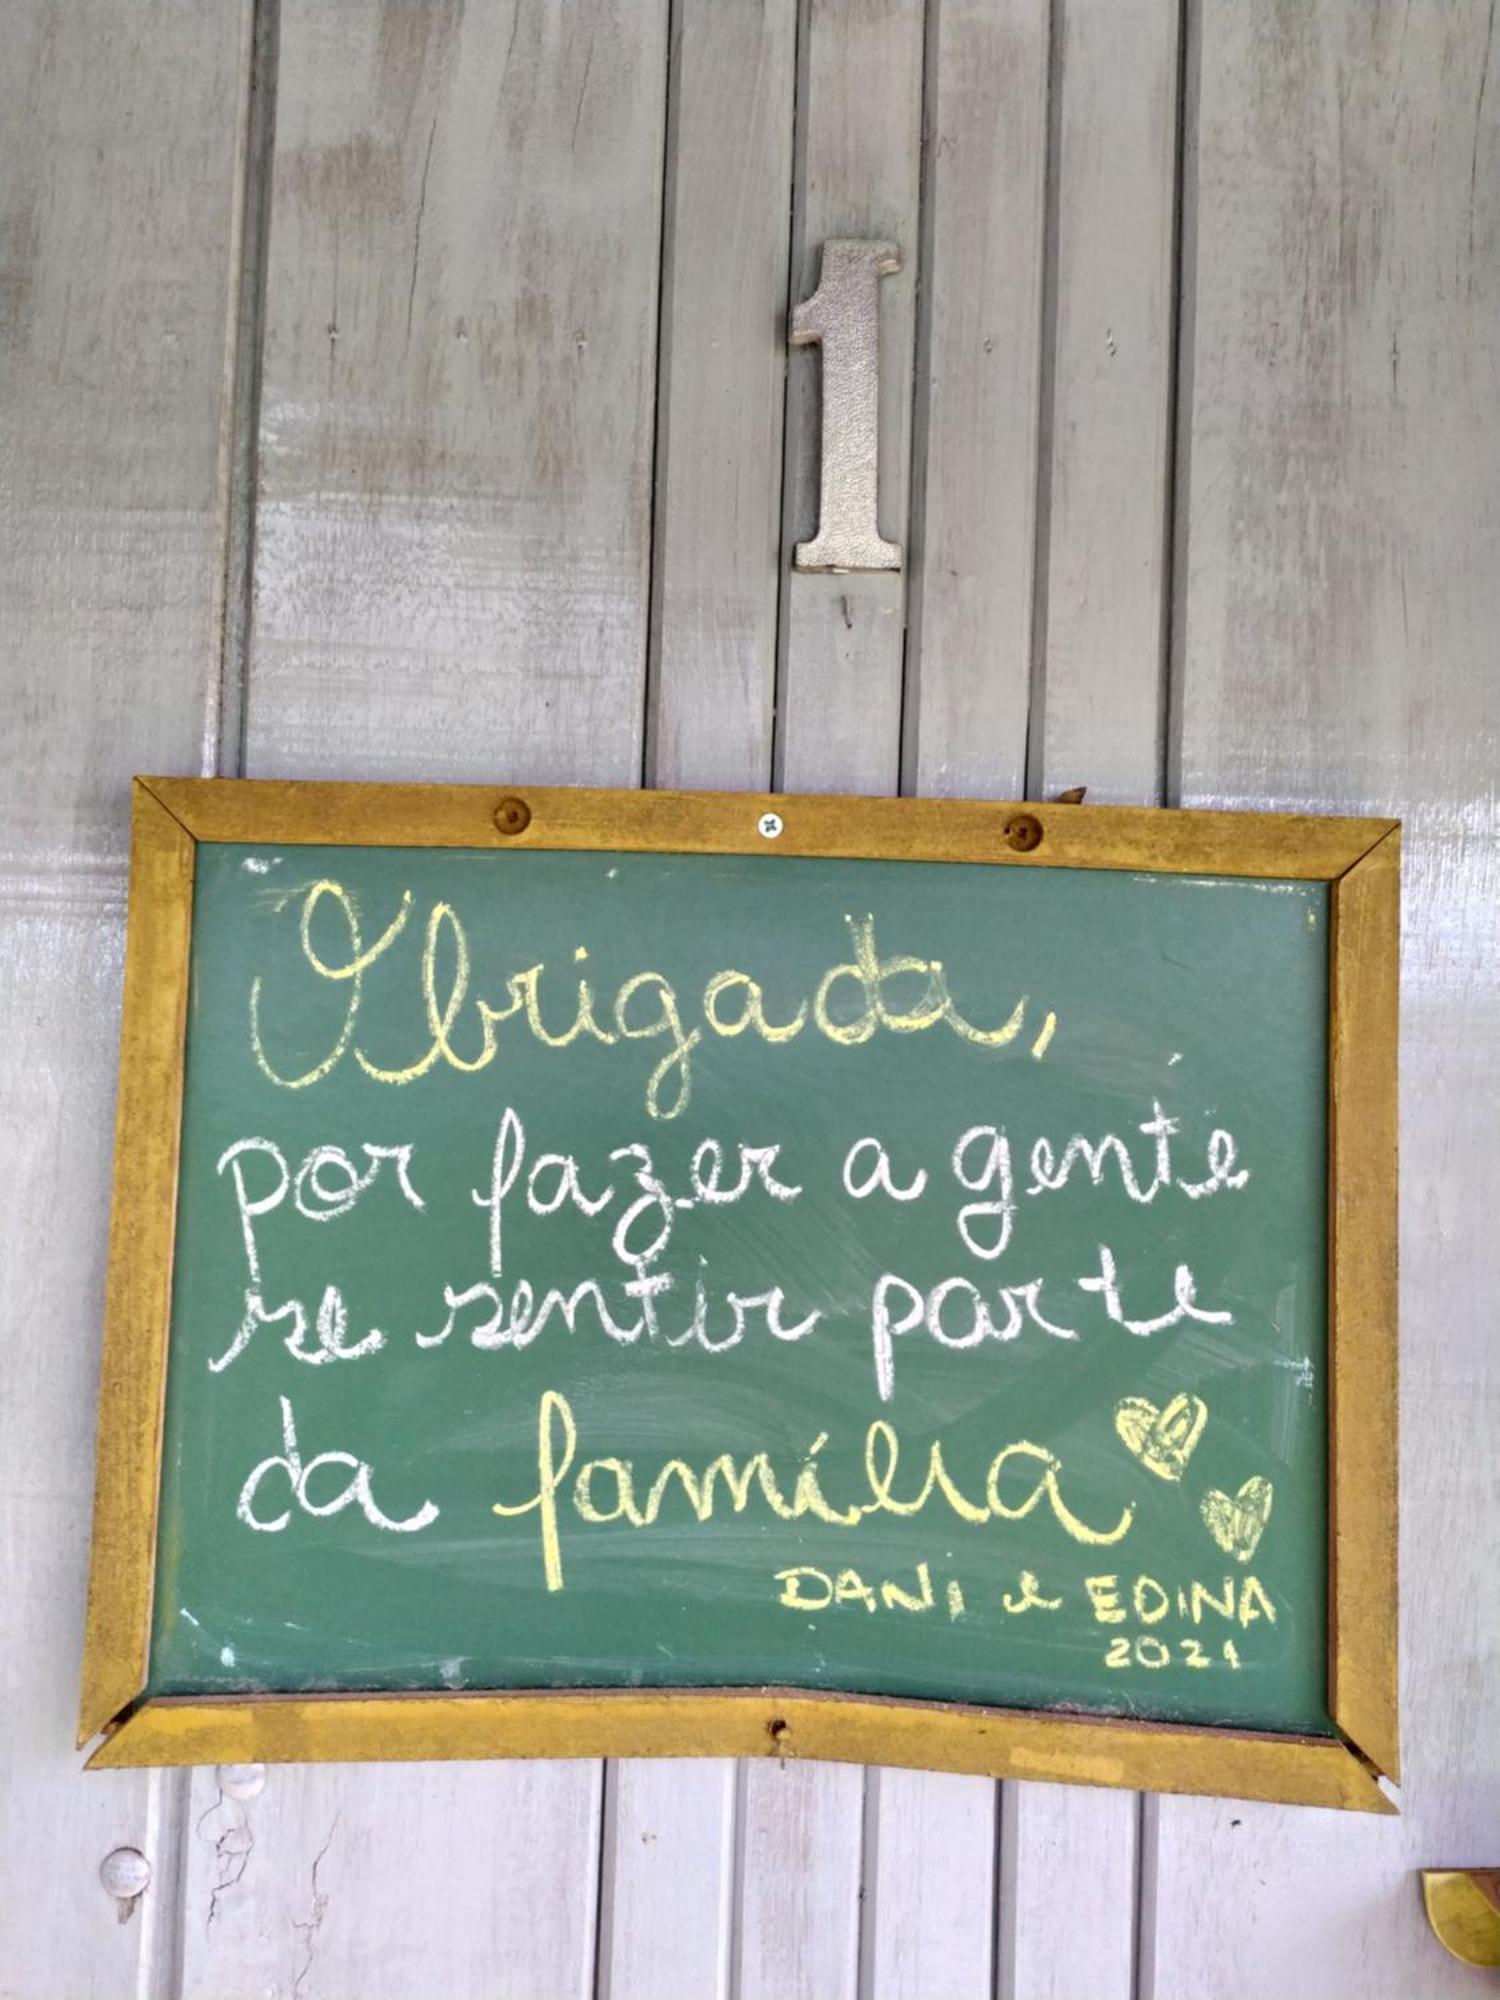 1
Obrigada,
por fazer a gente
se sentir parte
da família
DANI e EDINA
2021